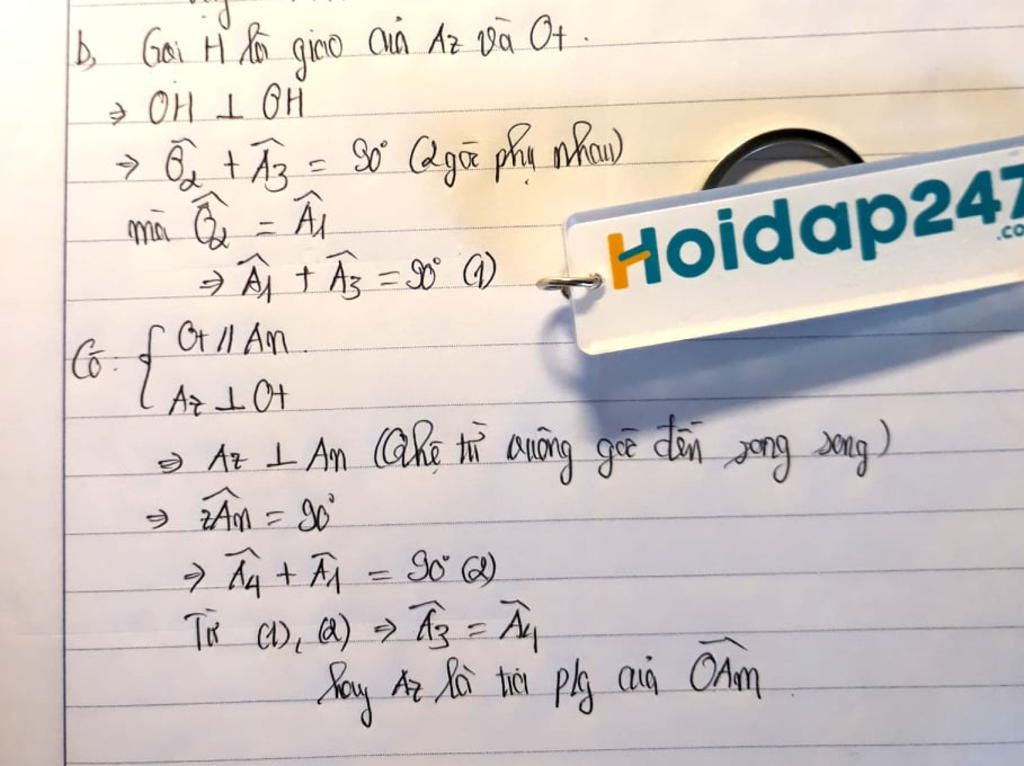 b, Gọi H là giao của Az và Ot.
⇒ OH ⊥ OH
⇒ Ô₂ + Â₃ = 90° (2 góc phụ nhau)
mà Ô₂ = Â₁
⇒ Â₁ + Â₃ = 90° (1)
Có: { Ot // An
Az ⊥ Ot
⇒ Az ⊥ An (Qhệ từ vuông góc đến song song)
⇒ zAn = 90°
⇒ Â₄ + Â₁ = 90° (2)
Từ (1), (2) ⇒ Â₃ = Â₄
hay Az là tia p/g của OAm
Hoidap247
.co